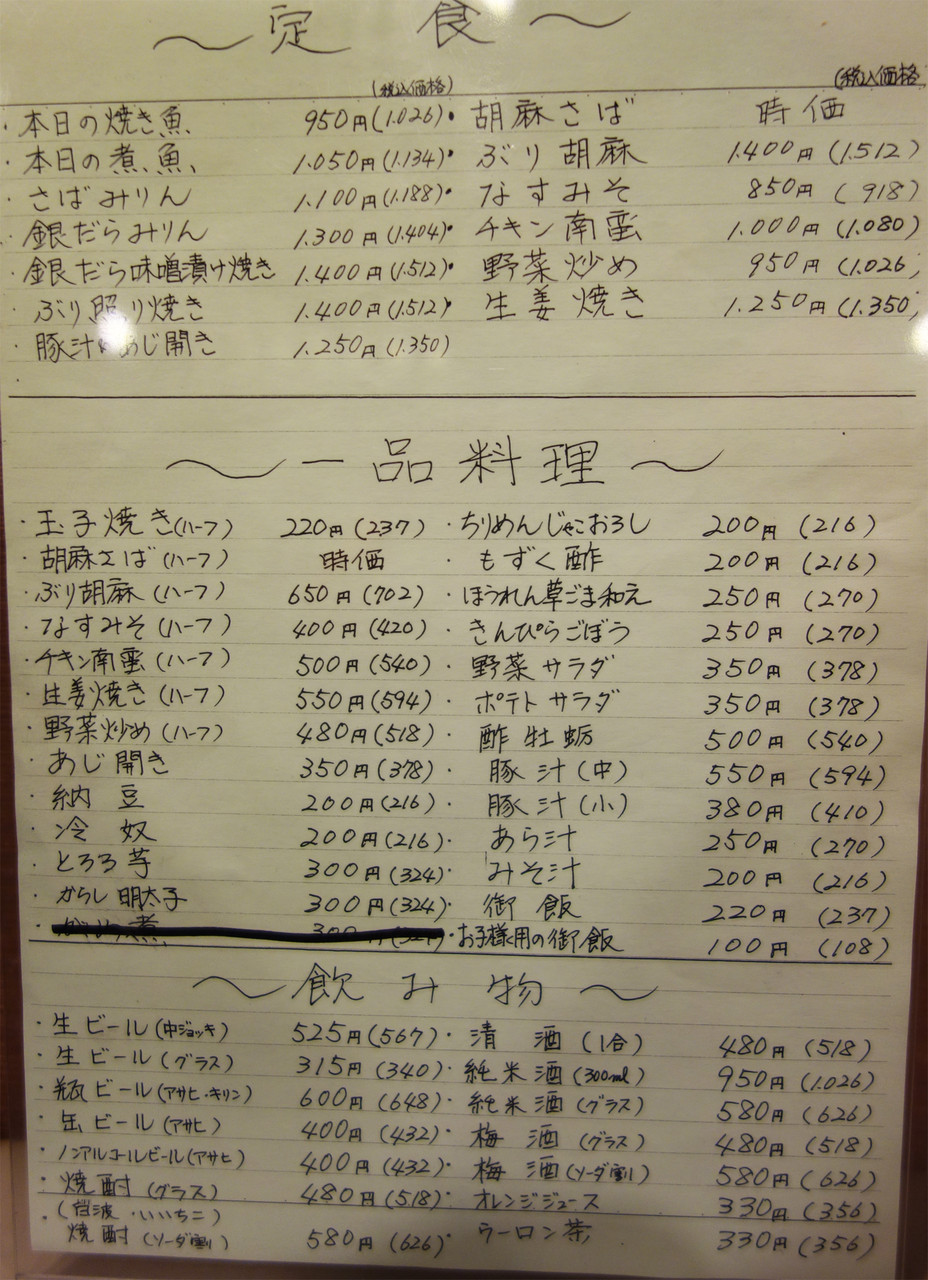 〜定食〜
(税込価格)
(税込価格)
・本日の焼き魚 950円(1.026)
・胡麻さば 時価
・本日の煮魚 1.050円(1.134)
・ぶり胡麻 1.400円(1.512)
・さばみりん 1.100円(1.188)
・なすみそ 850円(918)
・銀だらみりん 1.300円(1.404)
・チキン南蛮 1.000円(1.080)
・銀だら味噌漬け焼き 1.400円(1.512)
・野菜炒め 950円(1.026)
・ぶり照り焼き 1.400円(1.512)
・生姜焼き 1.250円(1.350)
・豚汁 あじ開き 1.250円(1.350)
〜一品料理〜
・玉子焼き(ハーフ) 220円(237)
・ちりめんじゃこおろし 200円(216)
・胡麻さば(ハーフ) 時価
・もずく酢 200円(216)
・ぶり胡麻(ハーフ) 650円(702)
・ほうれん草ごま和え 250円(270)
・なすみそ(ハーフ) 400円(420)
・きんぴらごぼう 250円(270)
・チキン南蛮(ハーフ) 500円(540)
・野菜サラダ 350円(378)
・生姜焼き(ハーフ) 550円(594)
・ポテトサラダ 350円(378)
・野菜炒め(ハーフ) 480円(518)
・酢牡蛎 500円(540)
・あじ開き 350円(378)
・豚汁(中) 550円(594)
・納豆 200円(216)
・豚汁(小) 380円(410)
・冷奴 200円(216)
・あら汁 250円(270)
・とろろ芋 300円(324)
・みそ汁 200円(216)
・からし明太子 300円(324)
・御飯 220円(237)
・お子様用の御飯 100円(108)
〜飲み物〜
・生ビール(中ジョッキ) 525円(567)
・清酒(1合) 480円(518)
・生ビール(グラス) 315円(340)
・純米酒(300ml) 950円(1.026)
・瓶ビール(アサヒ・キリン) 600円(648)
・純米酒(グラス) 580円(626)
・缶ビール(アサヒ) 400円(432)
・梅酒(グラス) 480円(518)
・ノンアルコールビール(アサヒ) 400円(432)
・梅酒(ソーダ割) 580円(626)
・焼酎(グラス) 480円(518)
・オレンジジュース 330円(356)
・いいちこ)
・焼酎(ソーダ割) 580円(626)
・ウーロン茶 330円(356)